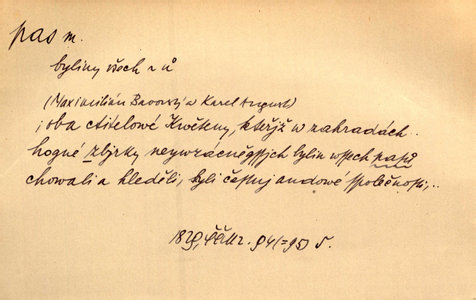 pas m.
byliny všech r ů
(Maximilián Bavorský a Karel August)
; oba ctitelowé Kwěteny, kteřjž w zahradách
hogné zbjrky neywzácněgssjch bylin wssech pasů
chowali a hleděli, byli čestnj audowé společnosti,..
94 (=95) 5.